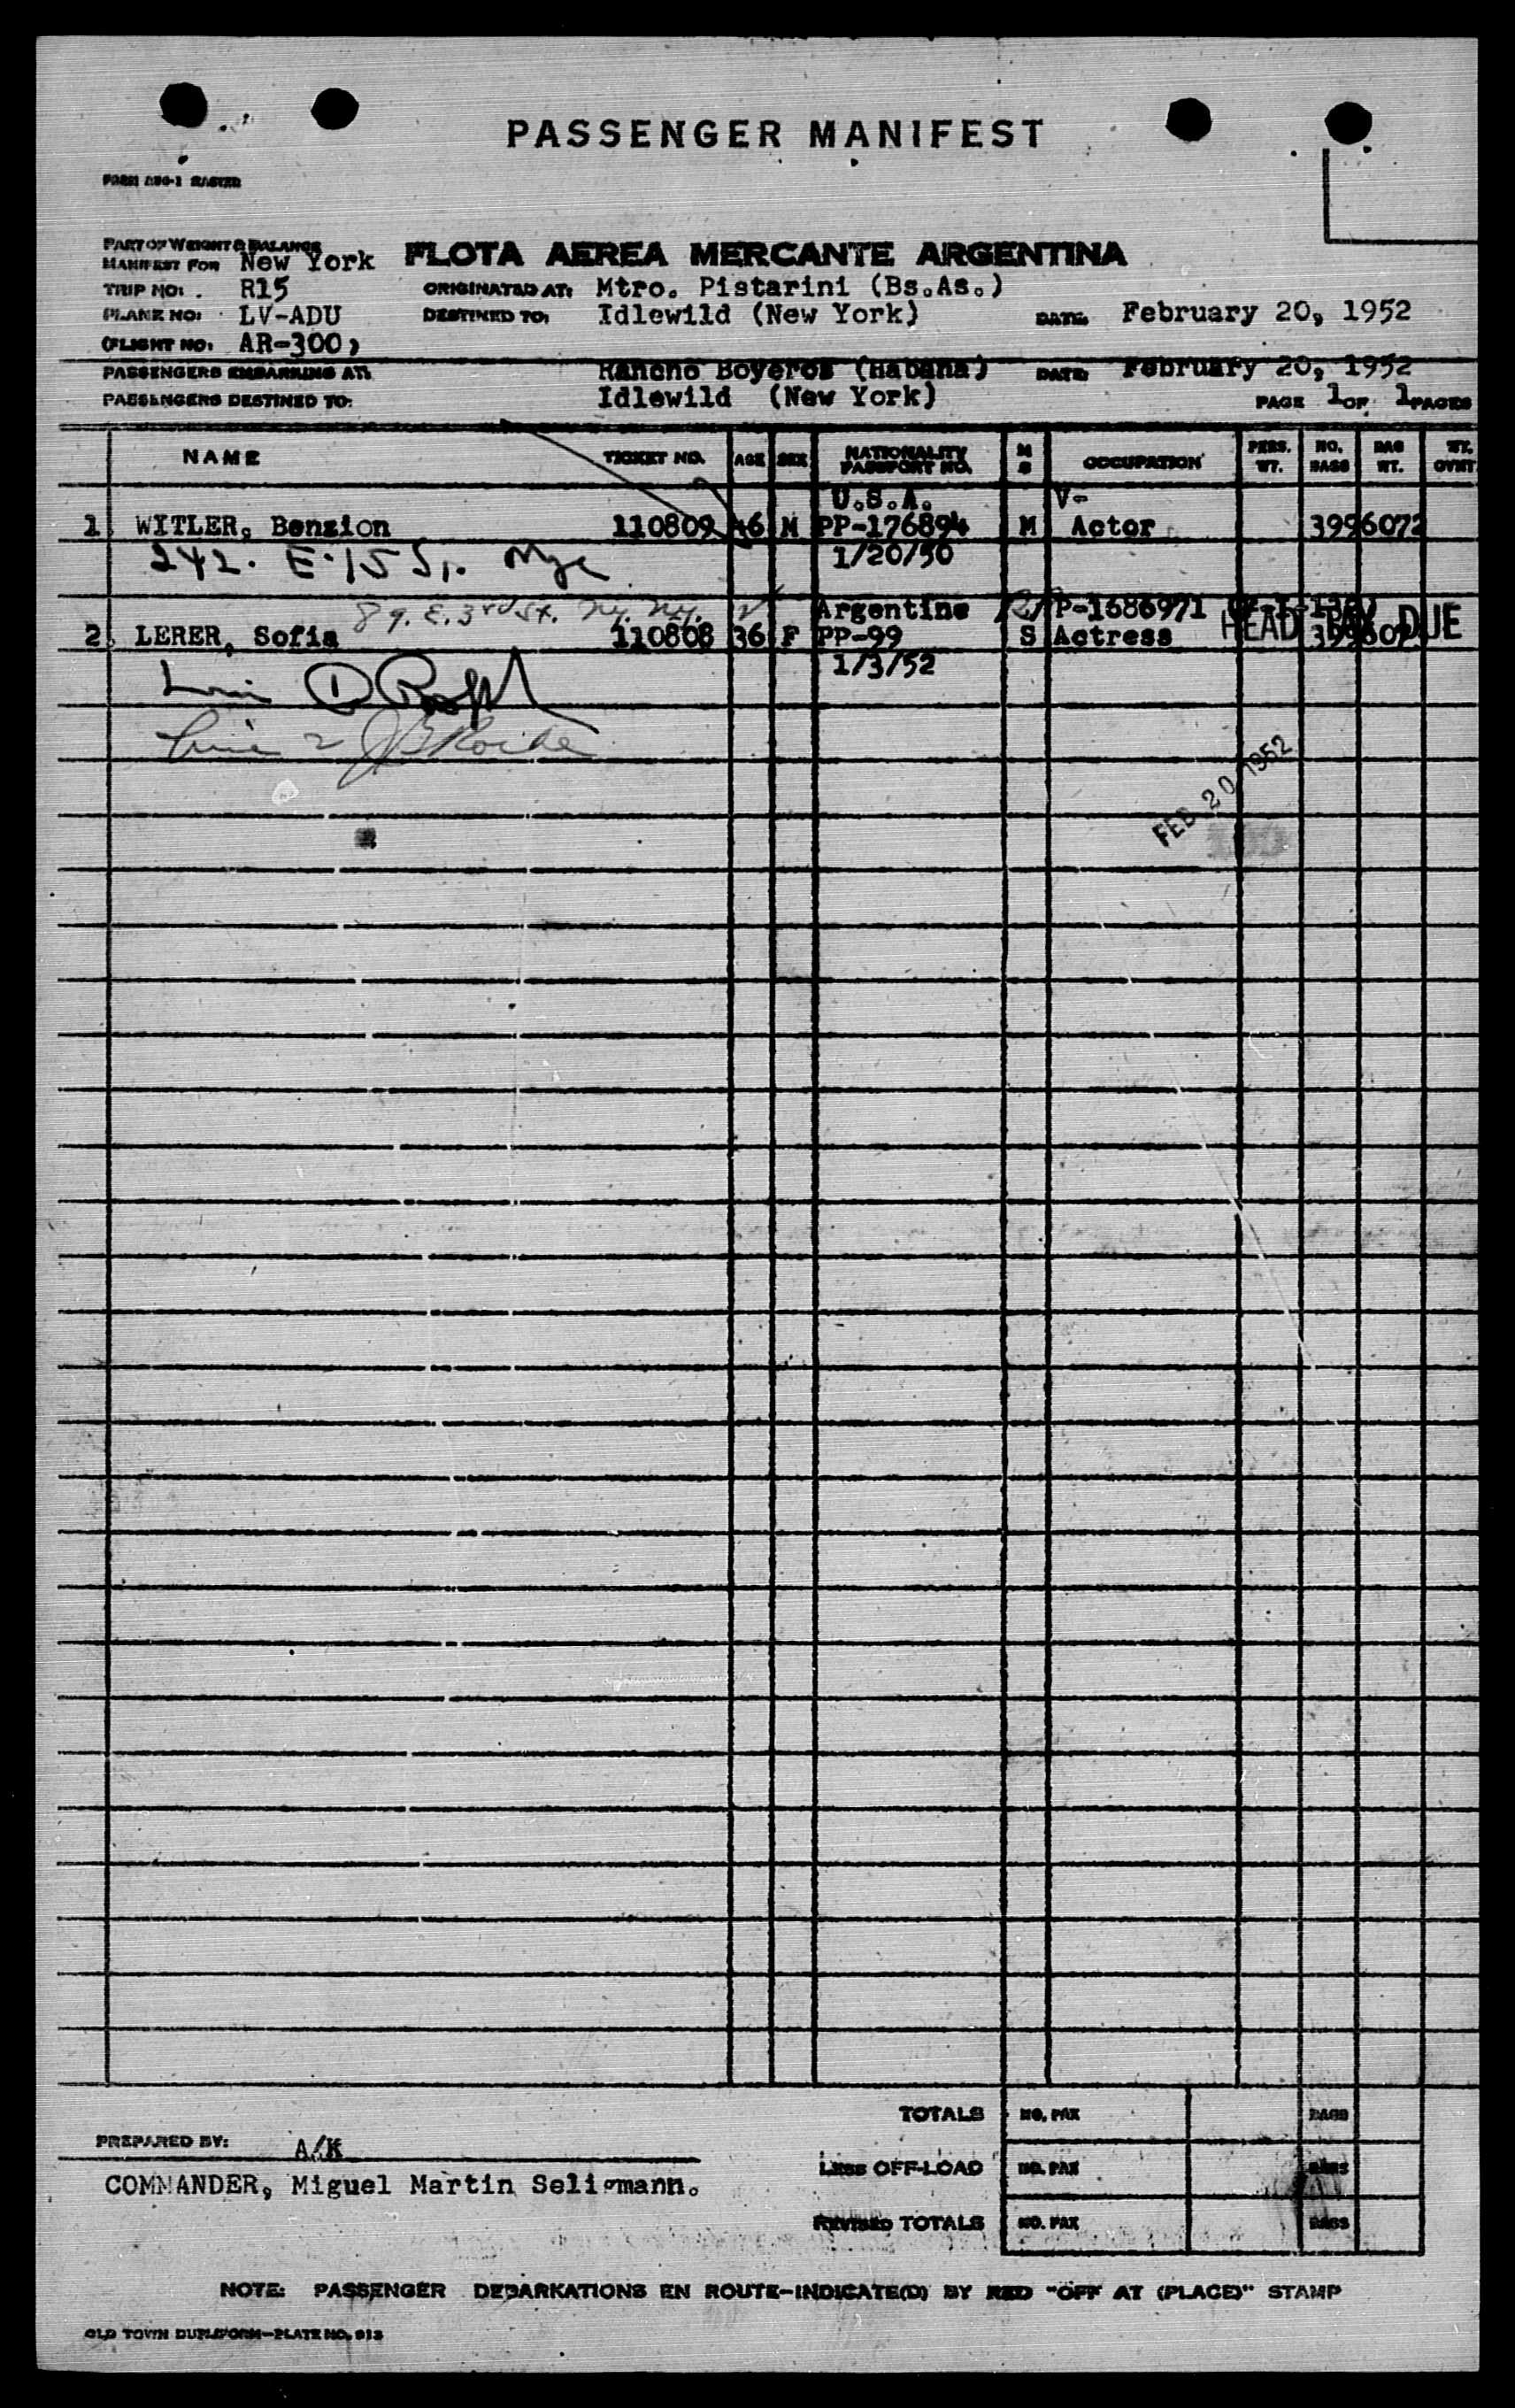 PASSENGER MANIFEST
PART OF WEIGHT & BALANCE
MANIFEST FOR New York FLOTA AEREA MERCANTE ARGENTINA
TRIP NO: R15 ORIGINATED AT: Mtro. Pistarini (Bs.As.)
PLANE NO: LV-ADU DESTINED TO: Idlewild (New York) DATE: February 20, 1952
FLIGHT NO. AR-300,
PASSENGERS EMBARKING AT: Rancho Boyeros (Habana) DATE: February 20, 1952
PASSENGERS DESTINED TO: Idlewild (New York) PAGE 1 OF 1 PAGES
NAME TICKET NO. AGE SEX NATIONALITY PASSPORT NO. M S OCCUPATION PERS. WT. NO. BAGS BAG WT. WT. OVWT
U.S.A. V-
1 WITLER, Benzion 110809 46 M PP-176894 M Actor 3996072
242. E. 15 St. NYC 1/20/50
89. E. 3rd St. N.Y. N.Y. Argentine P-1686971
HEAD TAX DUE
2 LERER, Sofia 110808 36 F PP-99 S Actress
1/3/52
Line 2
FEB 20 1952
TOTALS NO. PAX BAGS
PREPARED BY: A/K
LESS OFF-LOAD NO. PAX BAGS
COMMANDER, Miguel Martin Seligmann.
REVISED TOTALS NO. PAX BAGS
NOTE: PASSENGER DEBARKATIONS EN ROUTE-INDICATE(D) BY RED "OFF AT (PLACE)" STAMP
OLD TOWN DUPLIFORM-PLATE NO. 913